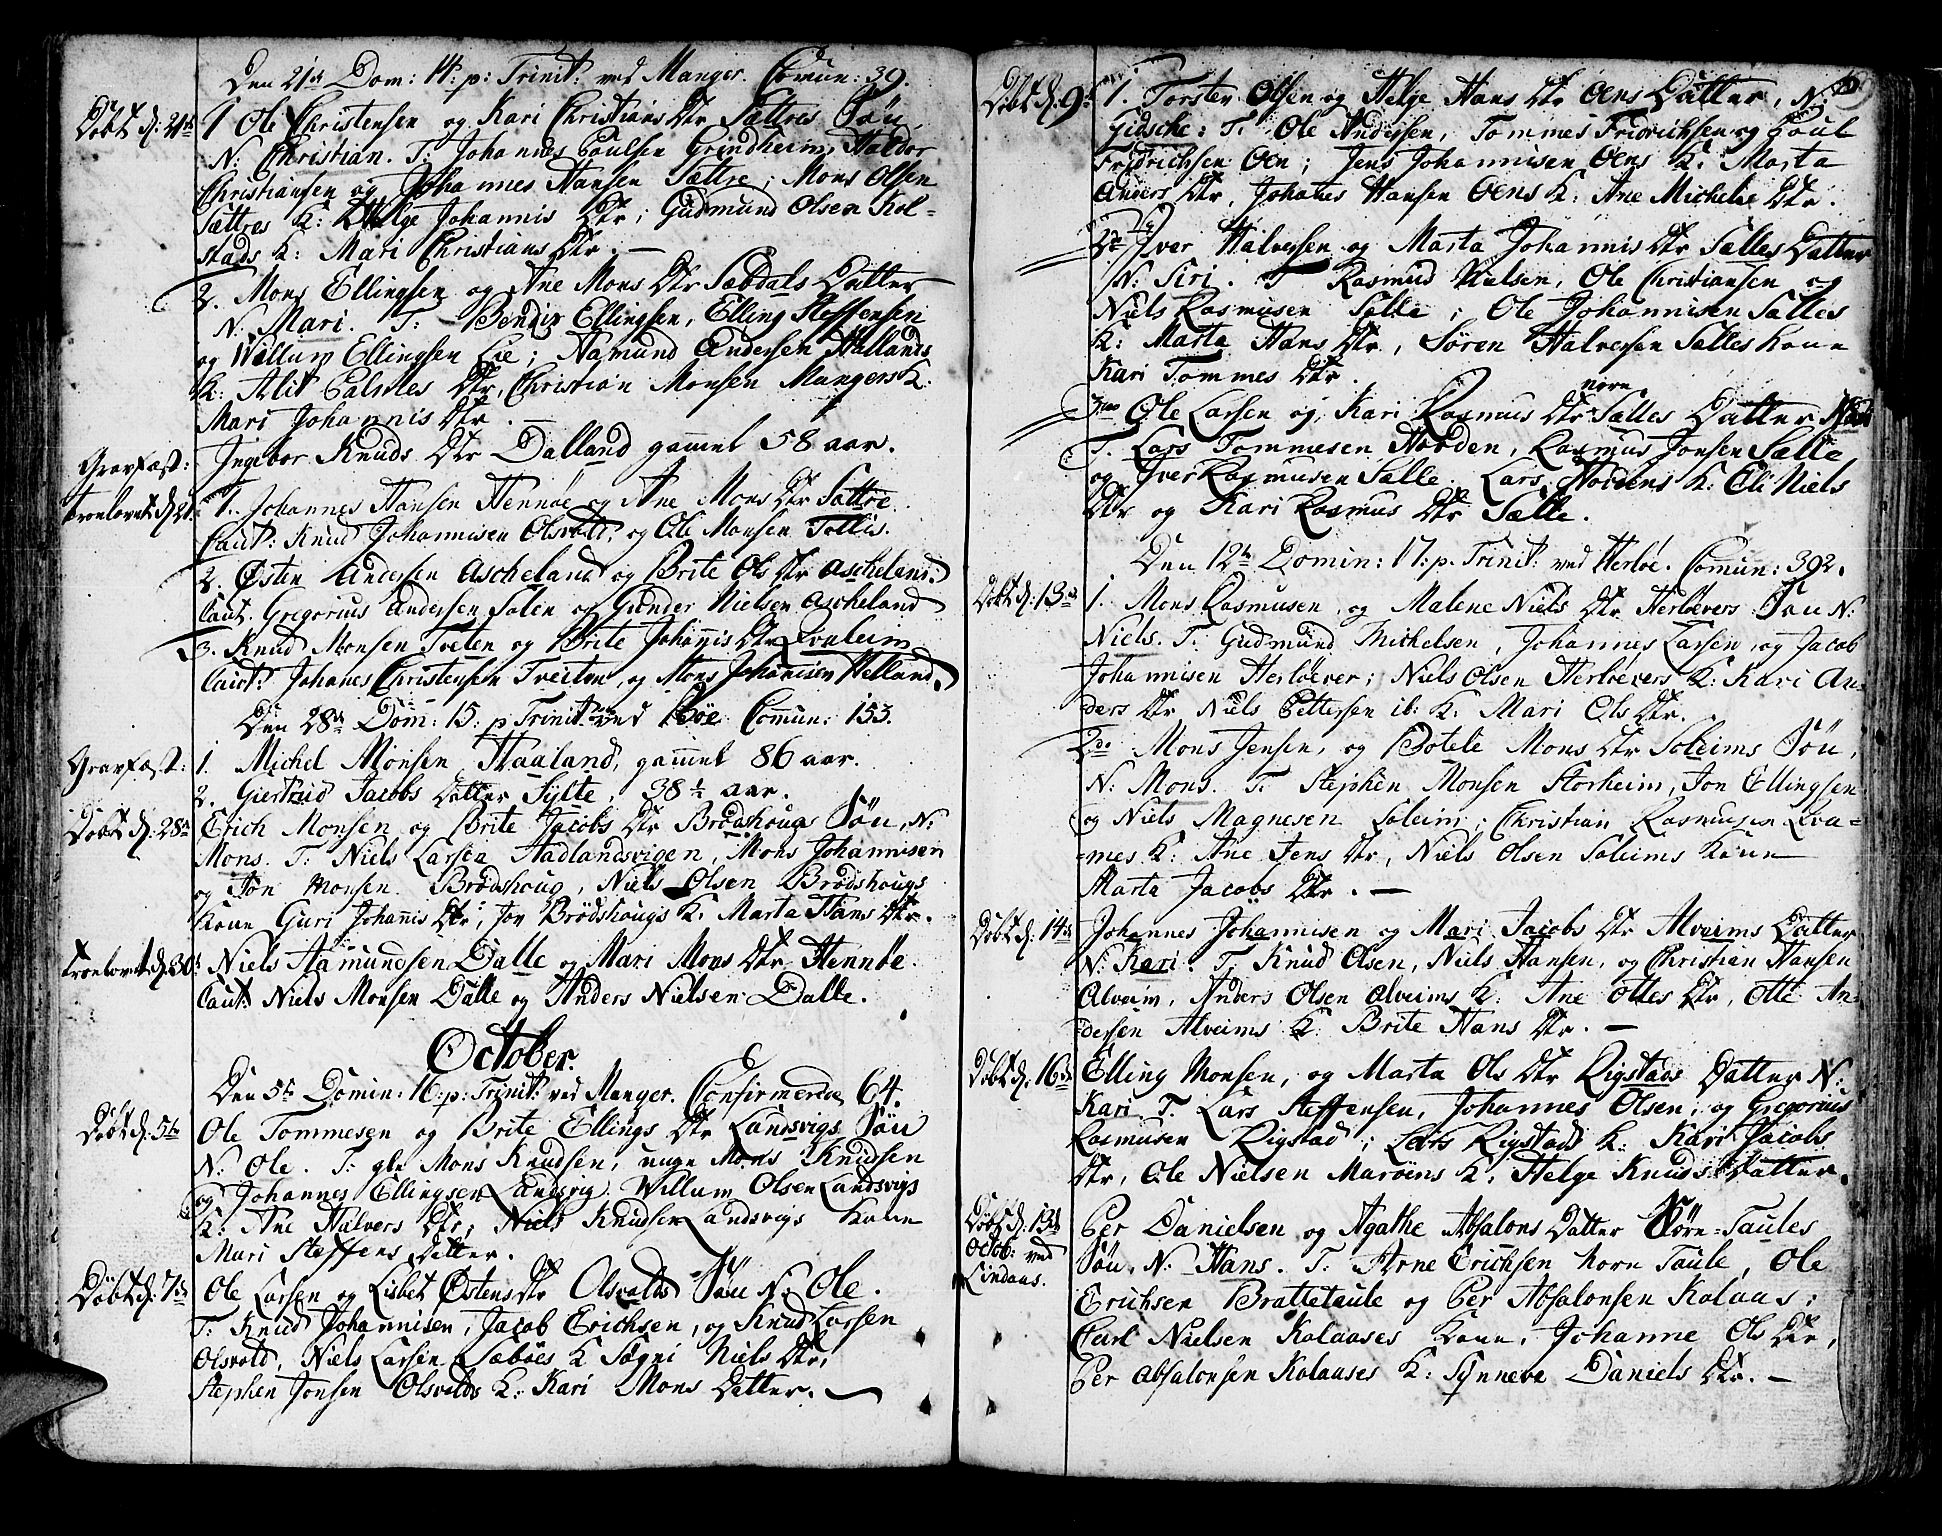 Den 21de Dom: 14: p: Trinit: ved Manger. Comun: 39.
Döbt d: 21de
1 Ole Christensen og Kari Christians Dtr Sættres Sön
N: Christian. T: Johannes Poulsen Grindheim, Haldor
Christiansen og Johannes Hansen Sættre; Mons Olsen
Sættres K: Helge Johannis Dtr; Gudmund Olsen Kol-
stads K: Mari Christians Dtr. —
2. Mons Ellingsen og Ane Mons Dtr Sæbdals Datter
N: Mari. T: Bendix Ellingsen, Elling Steffensen
og Willum Ellingsen Lie; Aamund Andersen Hallands
K: Alit Palmes Dtr, Christian Monsen Mangers K:
Mari Johannis Dtr.
Gravfæst:
Ingebor Knuds Dtr Dalland gammel 58 aar.
Troelovet d: 21.
1. Johannes Hansen Hennöe og Ane Mons Dtr Sættre
Caut: Knud Johannisen Olsvold, og Ole Monsen Tollis.
2. Østen Andersen Ascheland og Brite Ols Dtr Aschelan.
Caut. Gregorius Andersen Solen og Gunder Nielsen Ascheland
3. Knud Monsen Tveten og Brite Johannis Dtr Qvaleim
Caut: Johanes Christensen Treiten, og Mons Johannisen Helland.
Den 28de Dom: 15: p Trinit: ved Böe Comun: 153.
Gravfæst:
1. Michel Monsen Haaland, gammel 86 aar.
2. Giertrud Jacobs Datter Sylte, 38 ½ aar.
Döbt d: 28de
Erich Monsen og Brite Jacobs Dtr Brödshougs Sön N:
Mons. T: Niels Larsen Hadlandsvigen, Mons Johannisen
og Jon Monsen Brödshoug, Niels Olsen Brödshougs
Kone Guri Johannis Dtr; Jon Brödshougs K. Marta Hans Dtr.
Troelovet d: 30
Niels Hamundsen Dalle og Mari Mons Dtr Hennöe
Caut: Niels Monsen Dalle og Anders Nielsen Dalle.
October.
Den 5te Domin: 16: p: Trinit: ved Manger. Confirmerede 64.
Döbt d: 5te
Ole Tommesen og Brite Ellings Dtr Landsvigs Sön
N: Ole. T: gle Mons Knudsen, unge Mons Knudsen
og Johannes Ellingsen Landsvig. Willum Olsen Landsvigs
K: Ane Halvers Dtr; Niels Knudsen Landsvigs Kone
Mari Steffens Datter.
Döbt d: 7de
Ole Larsen og Lisbet Østens Dtr Olsvolds Sön N: Ole.
T: Knud Johannisen, Jacob Erichsen, og Knud Larsen
Olsvold, Niels Larsen Sæböes K Sögni Niels Dtr,
Stephen Jonsen Olsvolds K: Kari Mons Datter. —
Döbt d: 9de
1. Torsten Olsen og Helge Hans Dtr Oens Datter, N:
Gidsche: T: Ole Andersen, Tommes Fridrichsen og Poul
Fridrichsen Oen; Jens Johannisen Oens K: Marta
Anders Dtr, Johanes Hansen Oens K: Ane Michels Dtr.
2de Iver Halversen og Marta Johannis Dtr Sælles Datter
N: Siri. T Rasmus Nielsen, Ole Christiansen og
Niels Rasmusen Sælle; Ole Johannisen Sælles
K: Marta Hans Dtr, Sören Halversen Sælles Kone
Kari Tommes Dtr.
3tio Ole Larsen og Kari Rasmus Dtr Sælles Datter
T. Lars Tommesen Hopden, Rasmus Jonsen Sælle
og Iver Rasmusen Sælle. Lars Hopdens K: Eli Niels
Dtr og Kari Rasmus Dtr Sælle.
Den 12te Domin: 17: p. Trinit: ved Herlöe. Comun: 392.
Döbt d: 13de
1. Mons Rasmusen, og Malene Niels Dtr Herlöevers Sön N:
Niels. T: Gudmund Michelsen, Johannes Larsen, og Jacob
Johannisen Herlöever; Niels Olsen Herlöevers K: Kari An-
ders Dtr Niels Pettersen ib: K: Mari Ols Dtr.
2de Mons Jensen, og Botele Mons Dtr Soleims Sön,
N: Mons. T. Stephen Monsen Storheim, Jon Ellingsen
og Niels Magnesen Soleim; Christian Rasmusen Qva-
mes K: Ane Jens Dtr, Niels Olsen Soleims Kone
Marta Jacobs Dtr. —
Döbt d: 14de
Johannes Johannisen og Mari Jacobs Dtr Alveims Datter
N: Kari. T. Knud Olsen, Niels Hansen, og Christian Hansen
Alveim, Anders Olsen Alveims K: Ane Ottes Dtr, Otte An-
dersen Alveims K: Brite Hans Dtr. —
Döbt d: 16de
Elling Monsen, og Marta Ols Dtr Rigstads Datter N:
Kari. T. Lars Steffensen, Johannes Olsen, og Gregorius
Rasmusen Rigstad; Lars Rigstads K: Kari Jacobs
Dtr, Ole Nielsen Maröens K: Helge Knuds Datter.
Döbt d: 13de
Octob: ved
Lindaas.
Per Danielsen og Agathe Absalons Datter Nörn=Taules
Sön, N: Hans. T: Arne Erichsen Norn Taule, Ole
Erichsen Brattetaule og Per Absalonsen Kolaas;
Carl Nielsen Kolaases Kone, Johanne Ols Dtr,
Per Absalonsen Kolaases K: Synneve Daniels Dtr. —